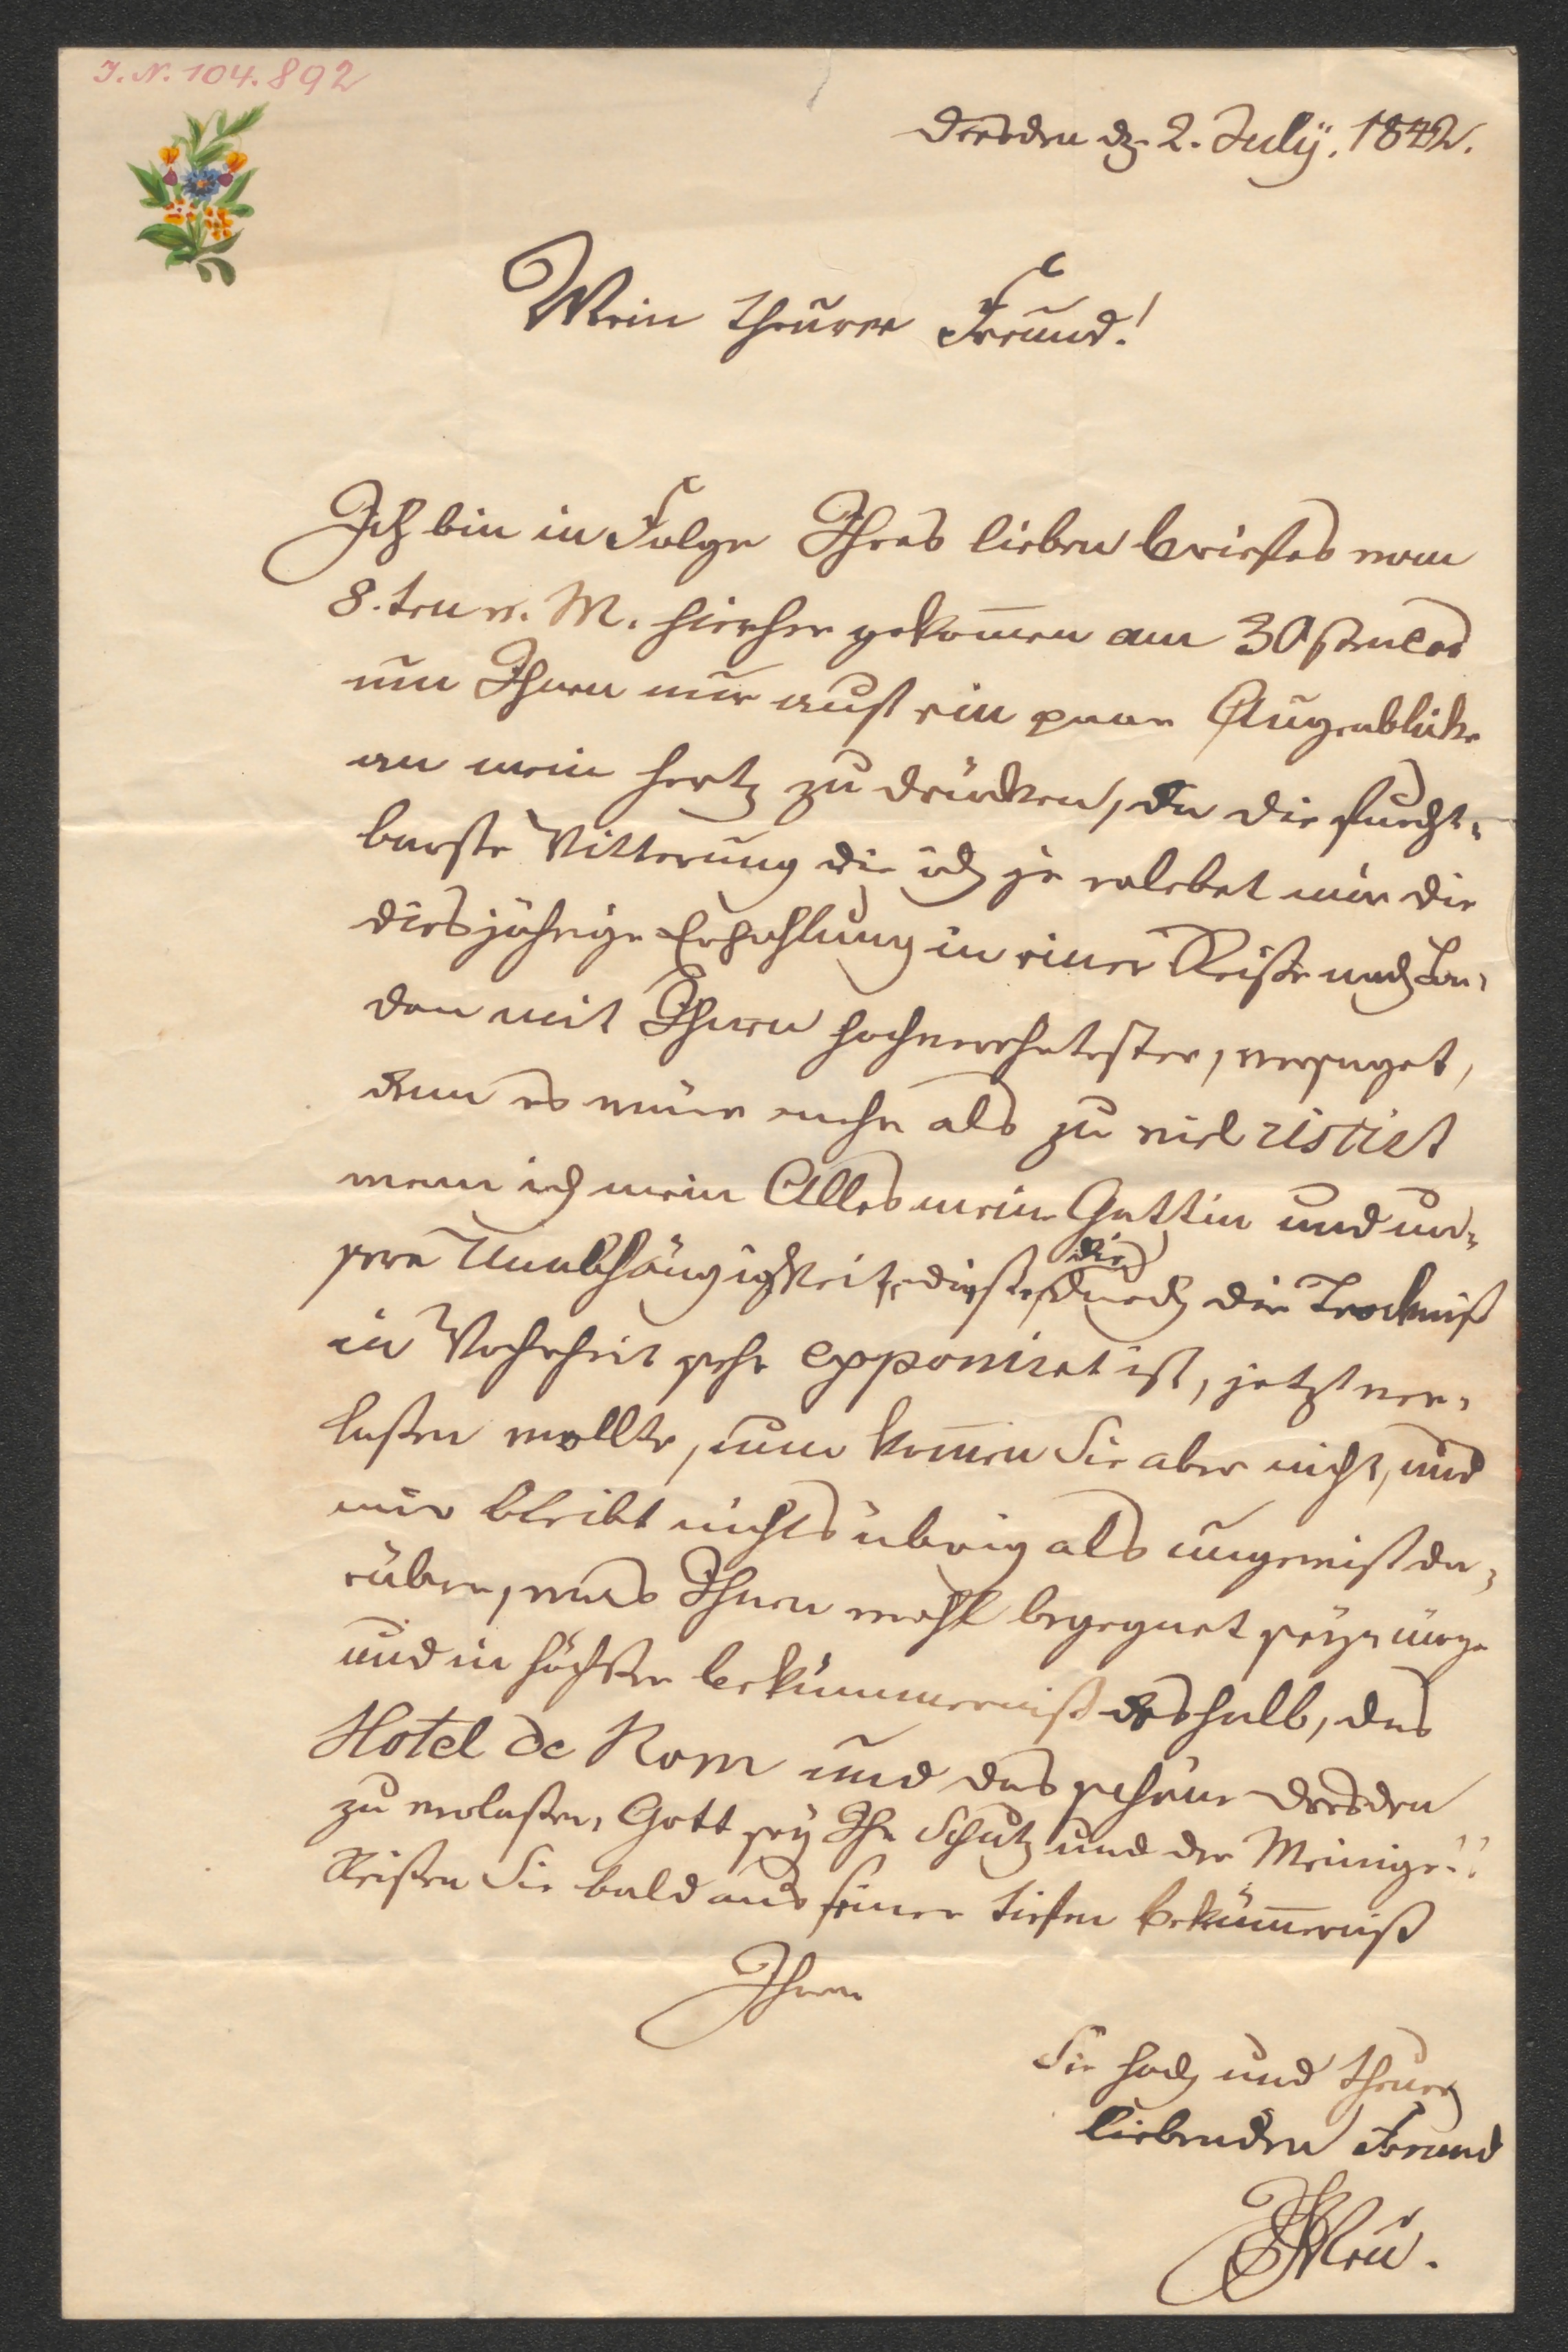 J. N. 104.892
Dresden dz. 2. Julÿ. 1842.
Mein theurer Freund!
Ich bin in Folge Ihres lieben briefes vom
8. ten v. M. hierher gekom̄en am 30sten
um Ihnen nur auf ein paar Augenblicke
an mein hertz zu drücken, da die furcht=
barste Witterung die ich je erlebet mir die
diesjährige Erhohlung in einer Reise nach Lon=
don mit Ihnen hochverehrtester, versaget,
denn es wäre mehr als zu viel riscirt
wenn ich mein Alles meine Gattin und un=
sere Unabhängigkeit, die durch die Trockniß
in Wahrheit sehr epponiret ist, jetzt ver=
lassen wollte, nun kom̄en Sie aber nicht, und
mir bleibt nichts übrig als ungewiß da=
rüber, was Ihnen wohl begegnet seyn möge
und in höchster bekümmerniß deshalb, das
Hotel de Rom und das schöne Dresden
zu verlassen, Gott seÿ Ihr Schutz und der Meinige!!
Reissen Sie bald aus seiner tiefen bekümerniß
Ihren
Sie hoch und theuer
liebenden Freund